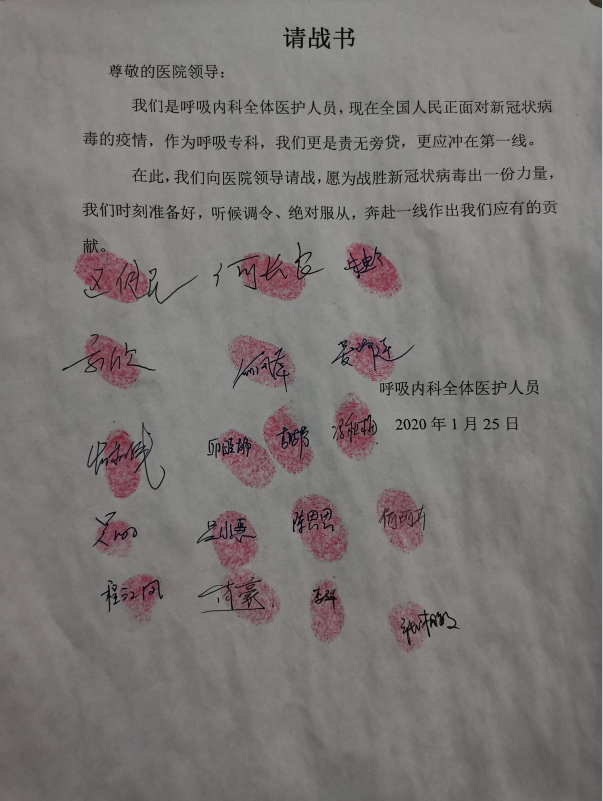 请战书
尊敬的医院领导：
我们是呼吸内科全体医护人员，现在全国人民正面对新冠状病
毒的疫情，作为呼吸专科，我们更是责无旁贷，更应冲在第一线。
在此，我们向医院领导请战，愿为战胜新冠状病毒出一份力量，
我们时刻准备好，听候调令、绝对服从，奔赴一线作出我们应有的贡
献。
呼吸内科全体医护人员
2020年1月25日
吕小慧 陈思思
程江凤